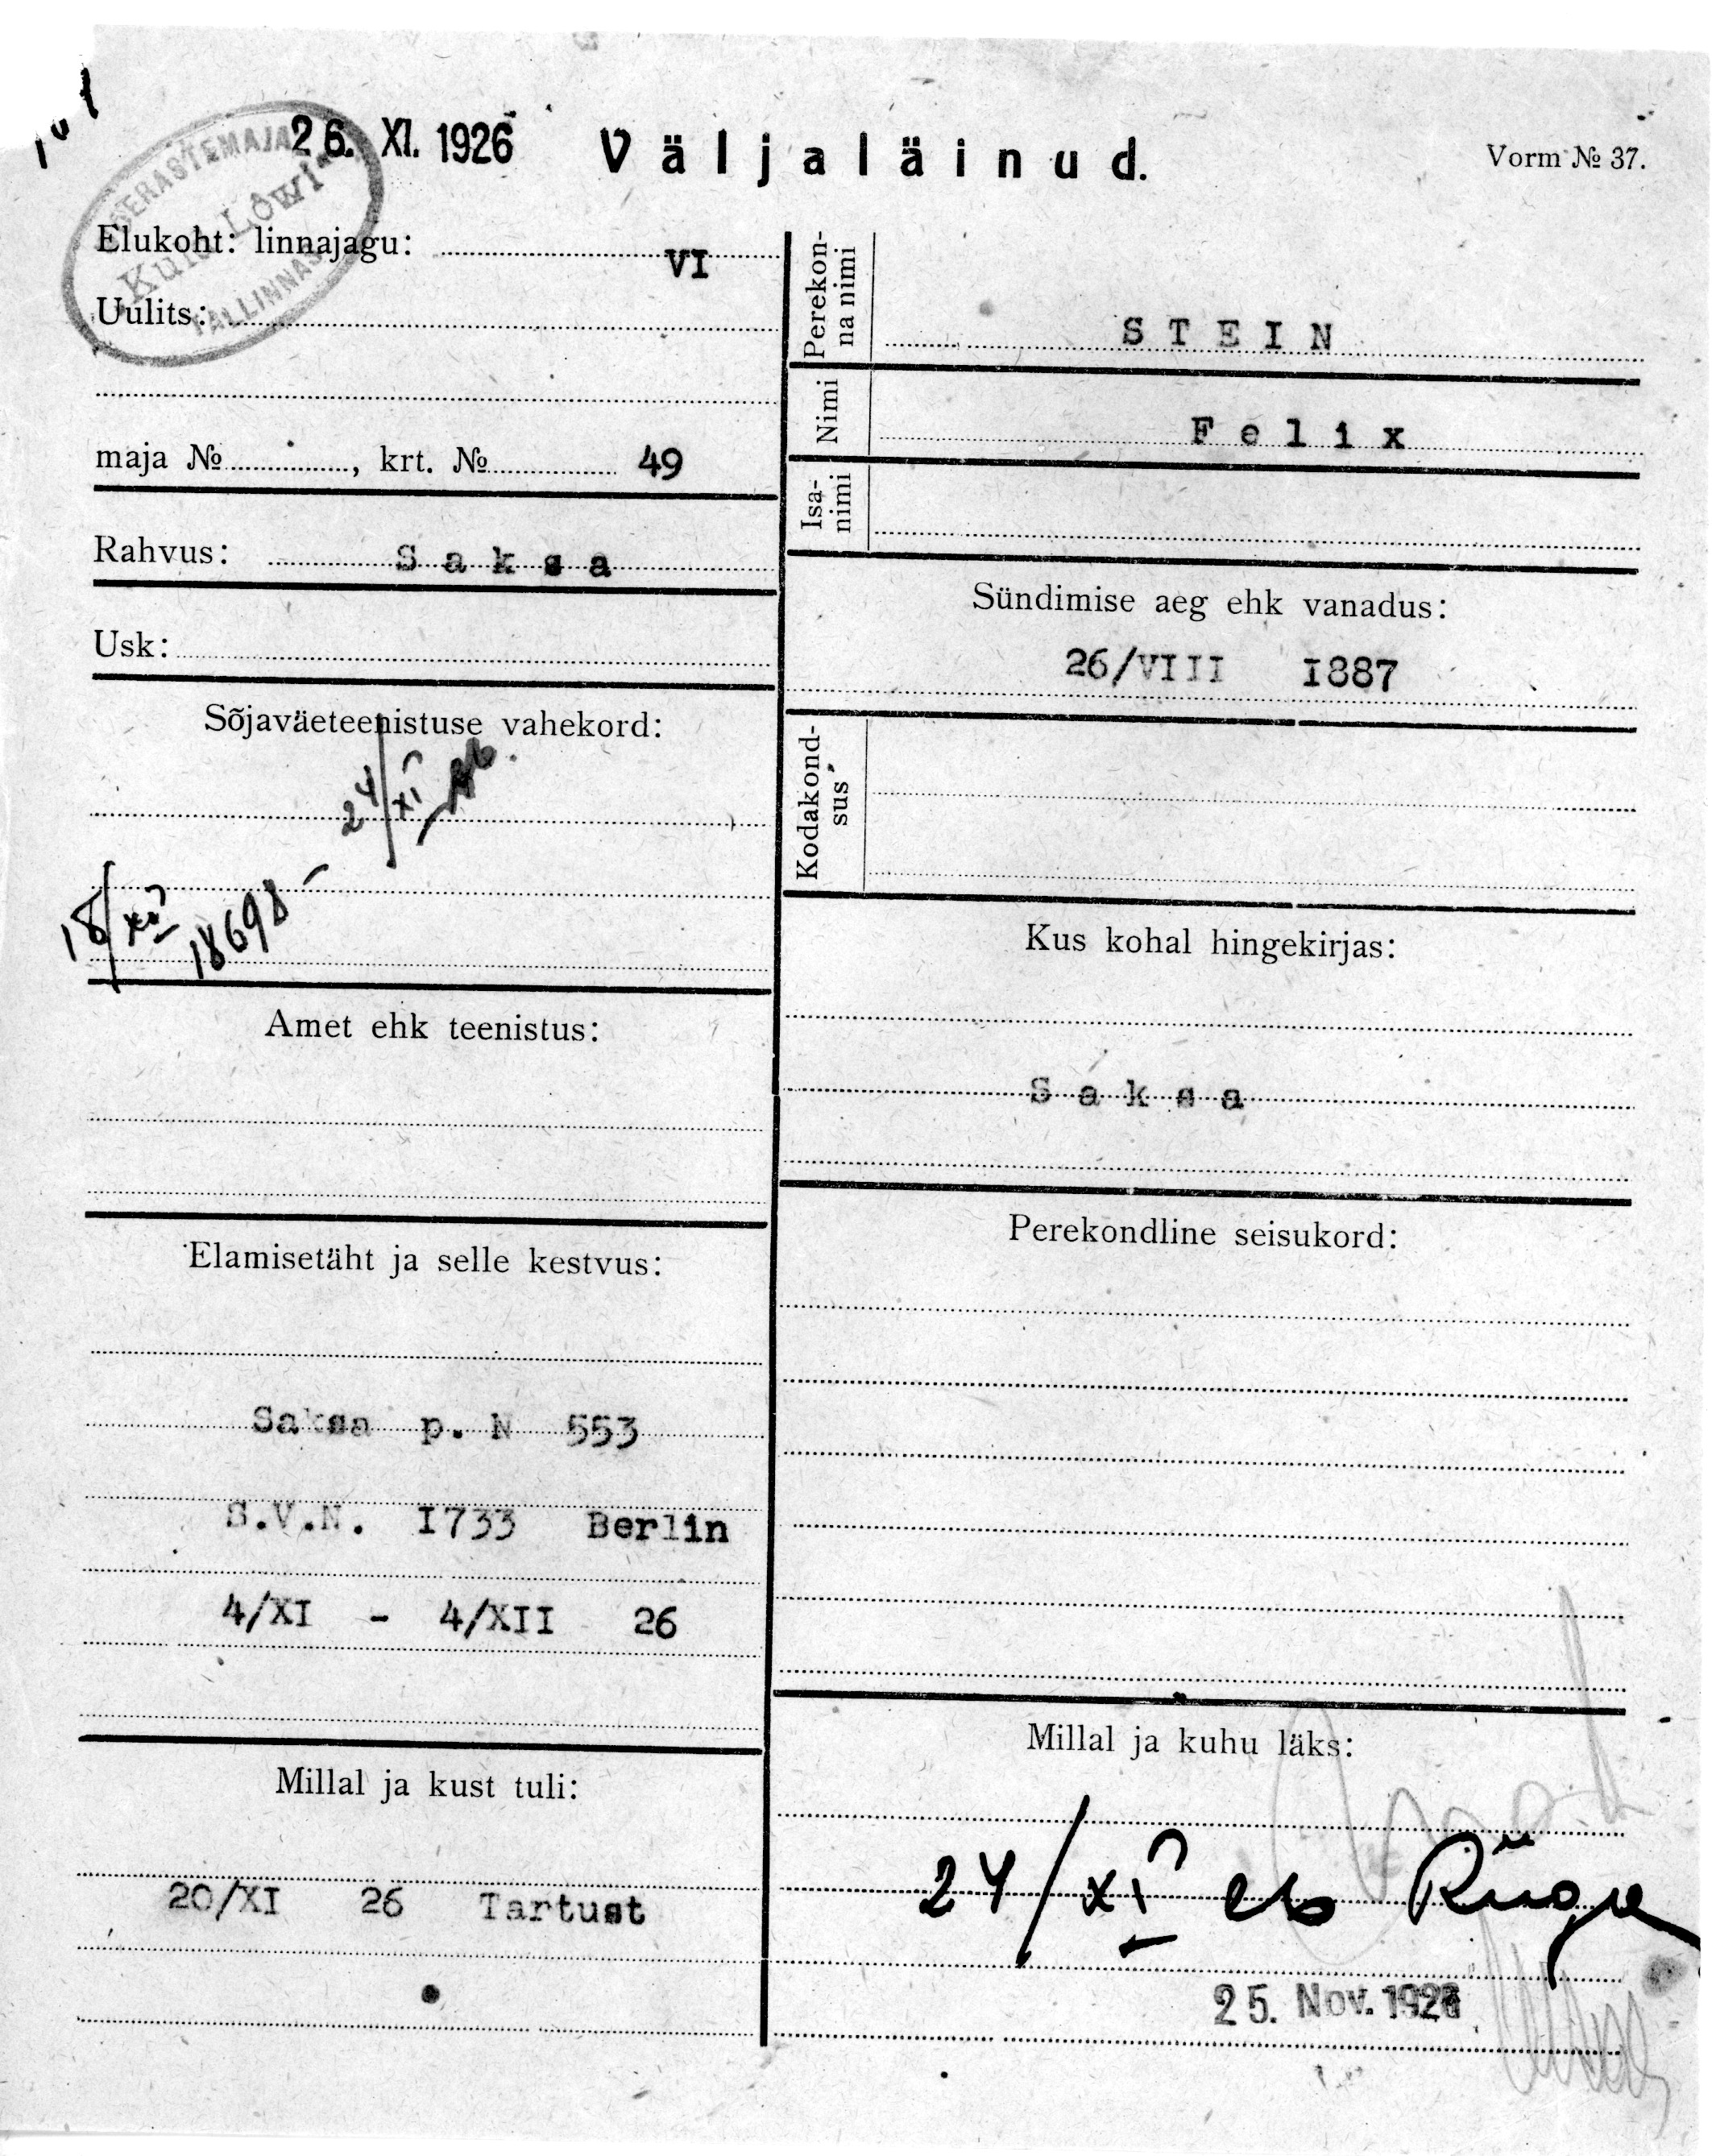 26. XI. 1926
Väljaläinud.
Vorm № 37.
VÕERASTEMAJA
TALLINNAS
Elukoht: linnajagu: VI
Uulits:
maja № , krt. № 49
Rahvus: Saksa
Usk:
Sõjaväeteenistuse vahekord:
24/XI
18/XII 18698
Amet ehk teenistus:
Elamisetäht ja selle kestvus:
Saksa p. N 553
S.V.N. I733 Berlin
4/XI - 4/XII 26
Millal ja kust tuli:
20/XI 26 Tartust
Perekon-
na nimi
STEIN
Nimi
Felix
Isa-
nimi
Sündimise aeg ehk vanadus:
26/VIII I887
Kodakond-
sus
Kus kohal hingekirjas:
Saksa
Perekondline seisukord:
Millal ja kuhu läks:
24/XI
25. Nov. 1926